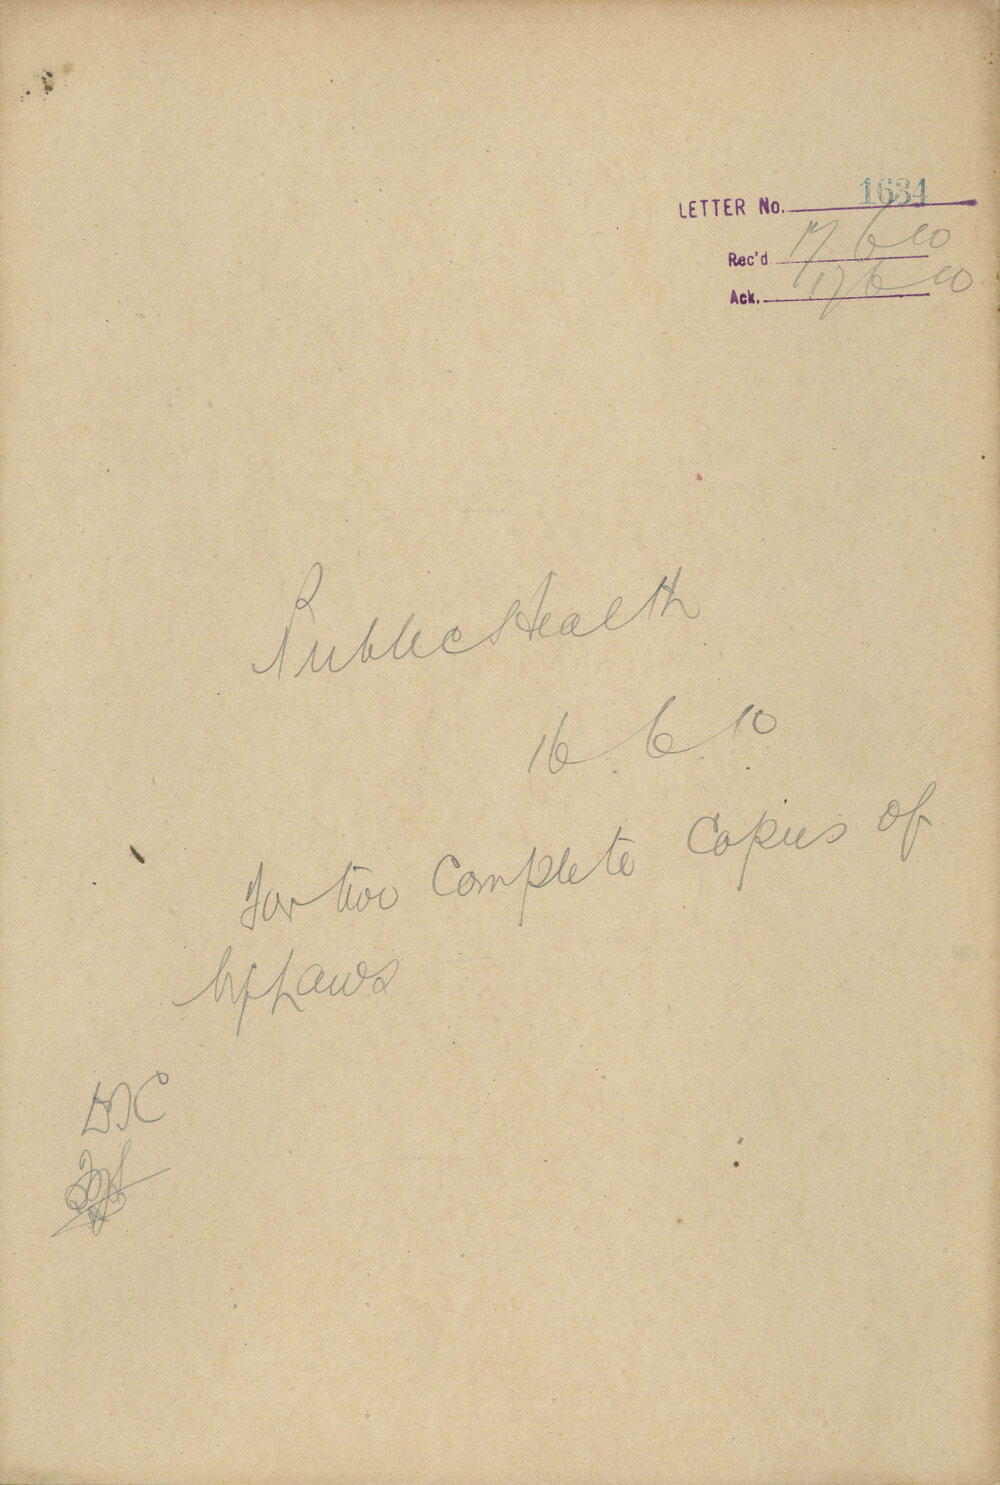 LETTER No. 1634
Rec'd 17. 6 10
Ack. 17 6 10
Public Health
16. 6. 10
For two Complete Copies of
by Laws